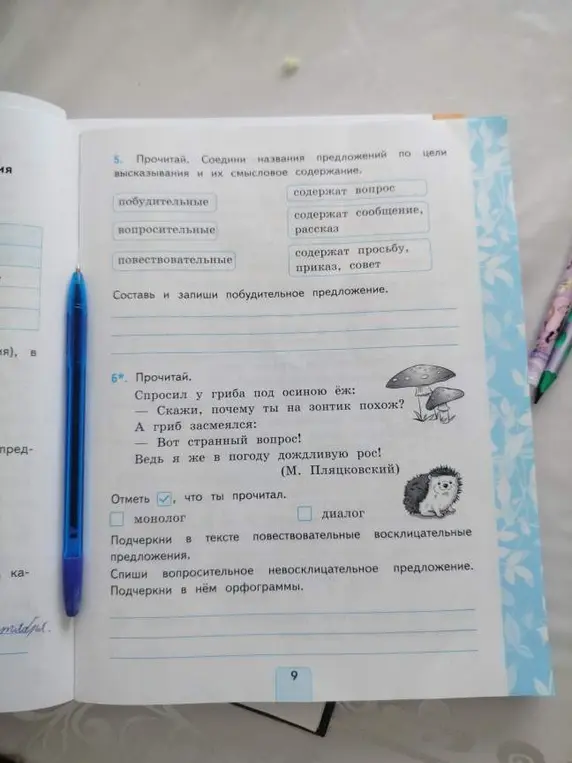 5. Прочитай. Соедини названия предложений по цели
высказывания и их смысловое содержание.
побудительные
содержат вопрос
вопросительные
содержат сообщение,
рассказ
повествовательные
содержат просьбу,
приказ, совет
Составь и запиши побудительное предложение.
6*. Прочитай.
Спросил у гриба под осиною ёж:
— Скажи, почему ты на зонтик похож?
А гриб засмеялся:
— Вот странный вопрос!
Ведь я же в погоду дождливую рос!
(М. Пляцковский)
Отметь ✓, что ты прочитал.
монолог
диалог
Подчеркни в тексте повествовательные восклицательные
предложения.
Спиши вопросительное невосклицательное предложение.
Подчеркни в нём орфограммы.
9
ия
ия), в
пред-
ка-